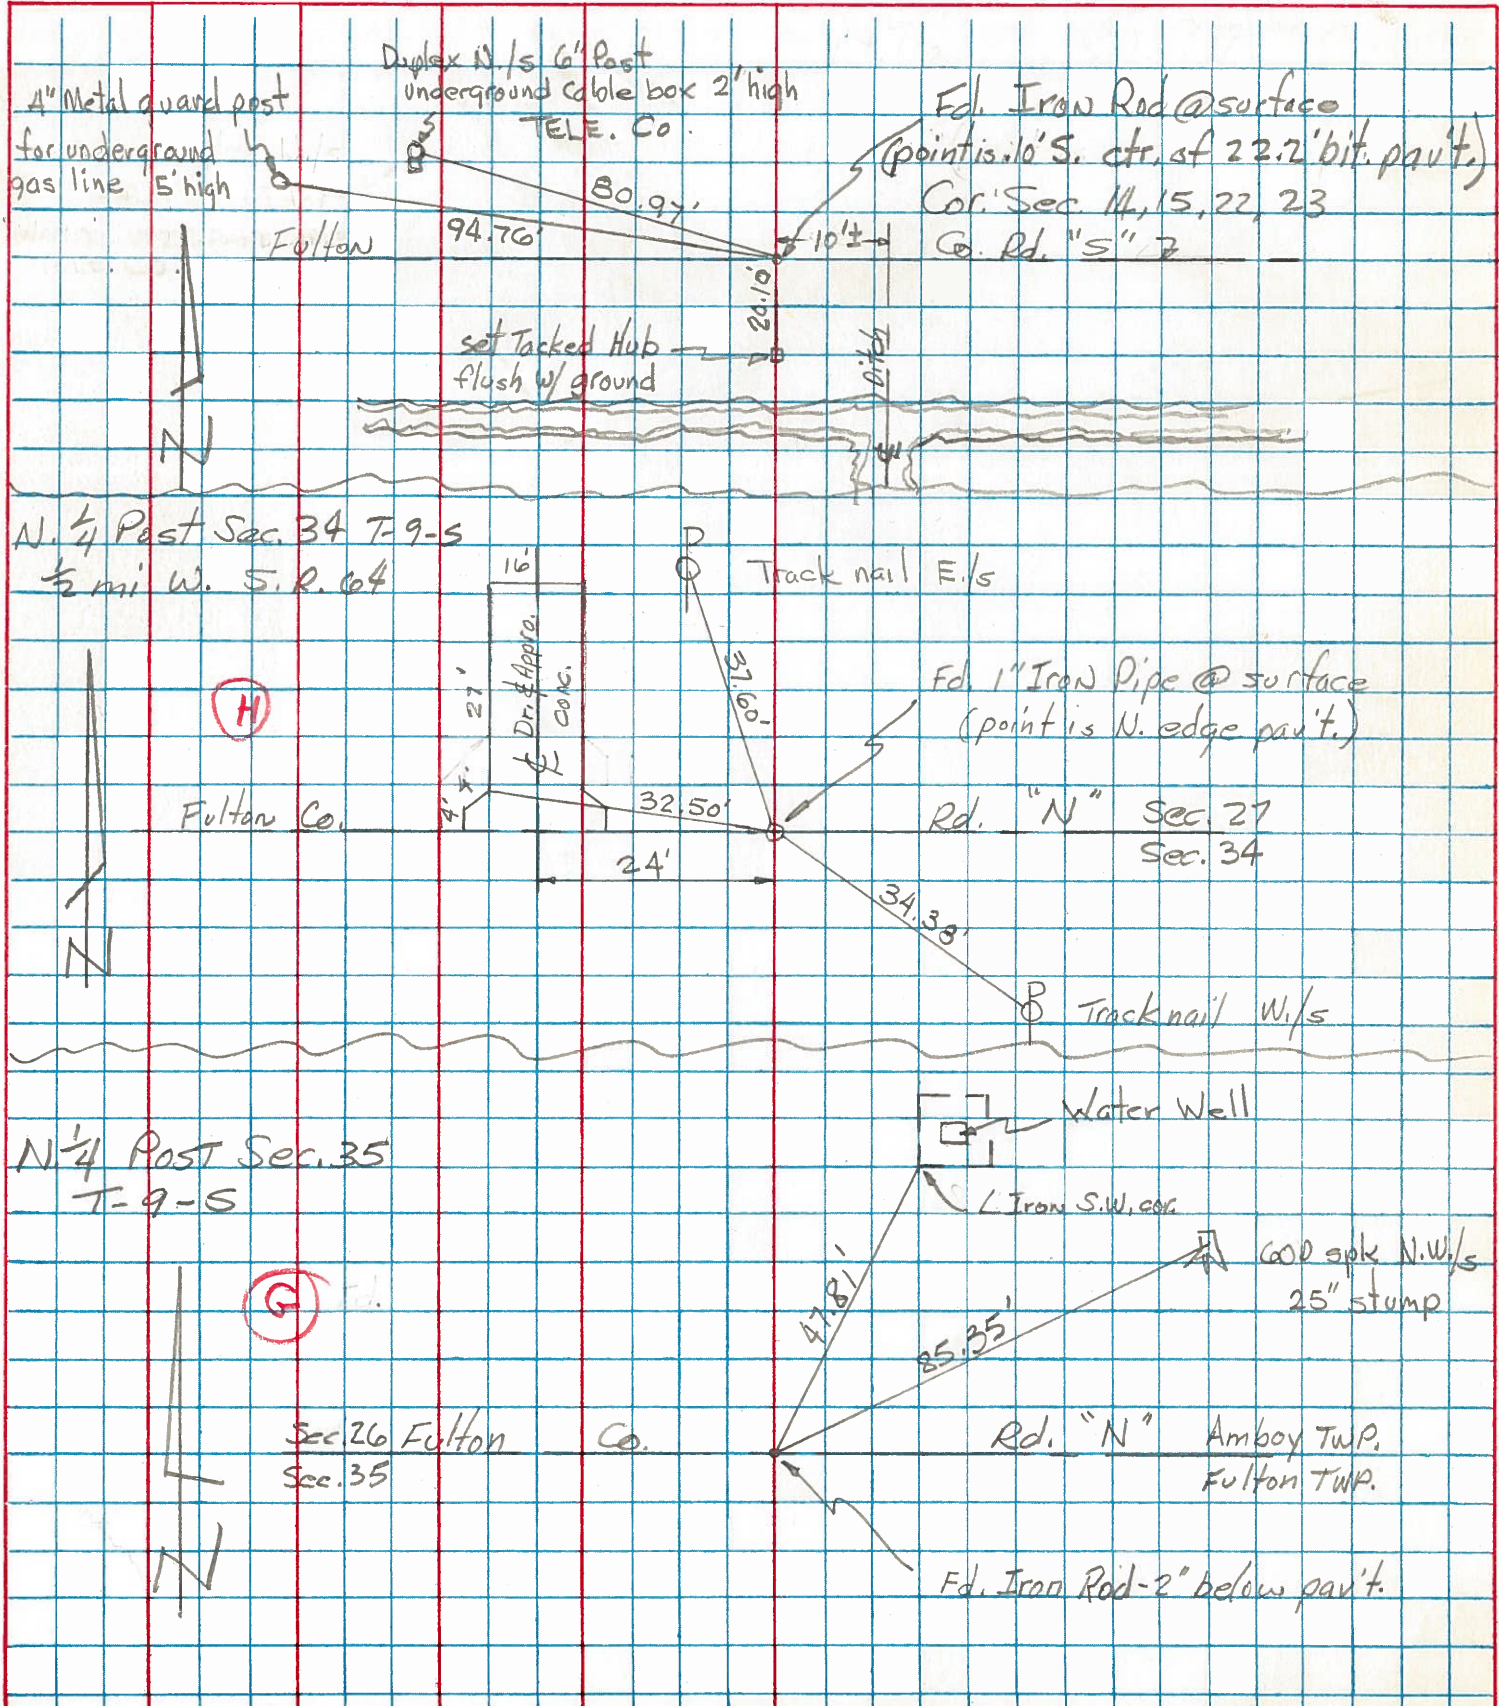 Duplex N./s 6" Post
underground cable box 2' high
TELE. Co.
4" Metal guard post
for underground
gas line 5' high
Fd. Iron Rod @ surface
(point is .10' S. ctr. of 22.2' bit. pav't.)
Cor. Sec. 14, 15, 22, 23
80.97'
94.76'
Fulton
10'±
Co. Rd. "S"
20.10'
set Tacked Hub
flush w/ ground
Ditch
N
N. 1/4 Post Sec. 34 T-9-S
1/2 mi W. S.R. 64
16'
P
Track nail E./s
27'
Dr. & Appro.
Conc.
37.60'
Fd. 1" Iron Pipe @ surface
(point is N. edge pav't.)
H
4'
4'
Fulton Co.
32.50'
Rd. "N" Sec. 27
Sec. 34
24'
34.38'
N
P
Track nail W./s
Water Well
N. 1/4 Post Sec. 35
T-9-S
L Iron S.W. cor.
60D spk N.W./s
25" stump
G
47.81'
85.35'
Sec. 26 Fulton Co. Rd. "N" Amboy TWP.
Sec. 35 Fulton TWP.
N
Fd. Iron Rod - 2" below pav't.